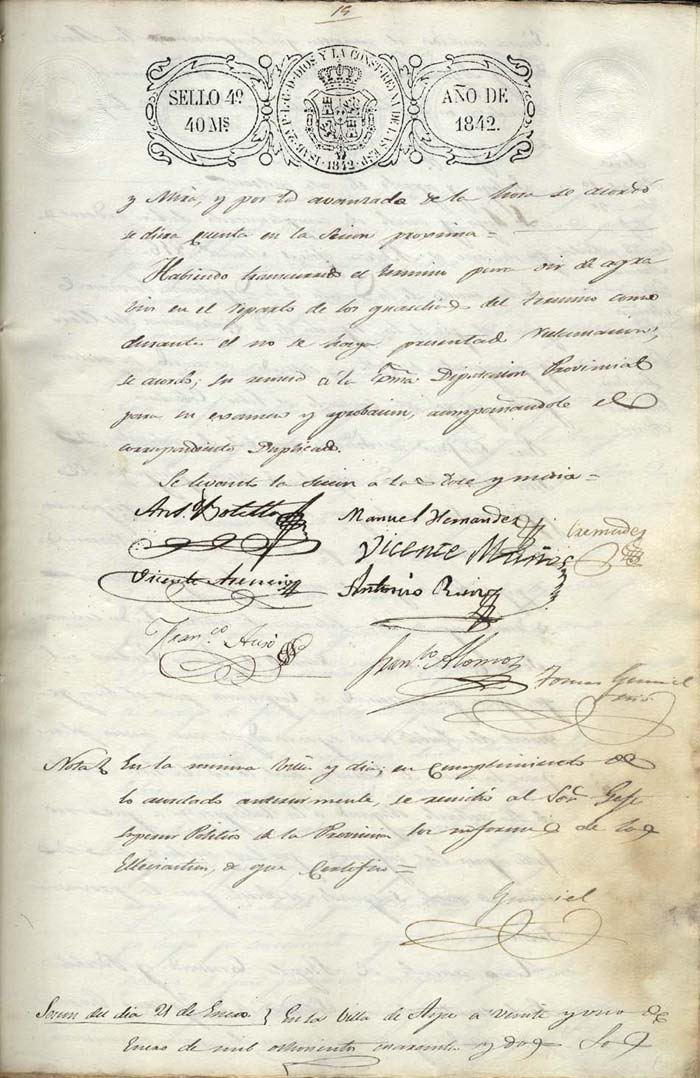 15
SELLO 4º
40 Ms
ISAB. 2ª P. L. G. D. DIOS Y LA CONST. REYNA DE LAS ESP. 1842
AÑO DE
1842.
y Mira, y por lo avanzado de la hora se acordó
se diera cuenta en la Secion proxima =
Habiendo transcurrido el termino para oir de agra
vios en el reparto de los guardias del termino como
durante el no se haya presentado reclamacion,
se acordó; su remision á la Exma Diputacion Provincial
para su examen y aprobacion, acompañandole el
correspondiente Duplicado.
Se levantó la secion a las doce y media =
Antº. Botella
Manuel Hernandez
Cremades
Vicente Muños
Vicente Asencio
Antonio
Franco. Auso
Franco Alonso
Tomas Gumiel
Nota En la misma Villa y dia; en cumplimiento de
lo acordado anteriormente, se remitió al Sor. Gefe
Superior Politico de la Provincia los informes de los
de que Certifico =
Gumiel
Secion del dia 21 de Enero } En la Villa de Aspe a veinte y uno de
Enero de mil ochocientos cuarenta y dos